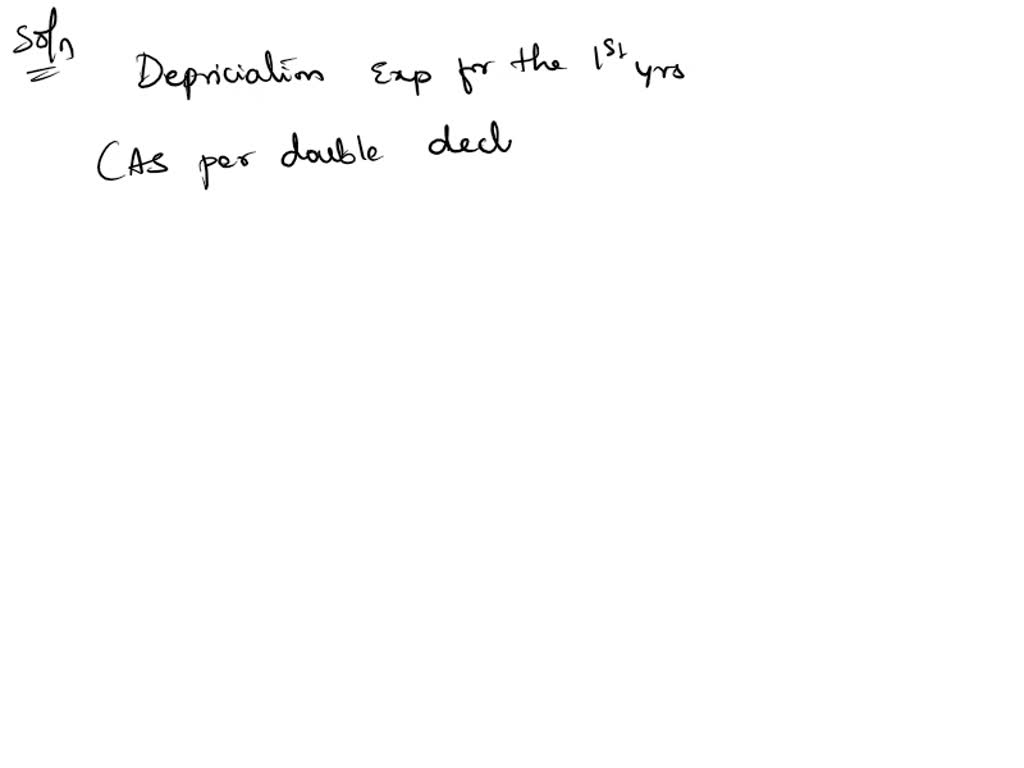 Soln
Depriciation Exp for the 1st yrs
(As per double decl